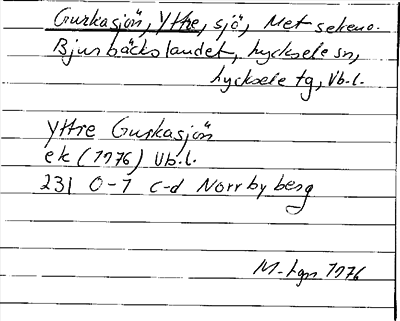 Gurkasjön, Yttre, sjö, Met seken o.
Bjurbäckslandet, Lycksele sn,
Lycksele tg, Vb.l.
Yttre Gurkasjön
ek (1976) Vb.l.
23 I 0-1 c-d Norrbyberg
1976